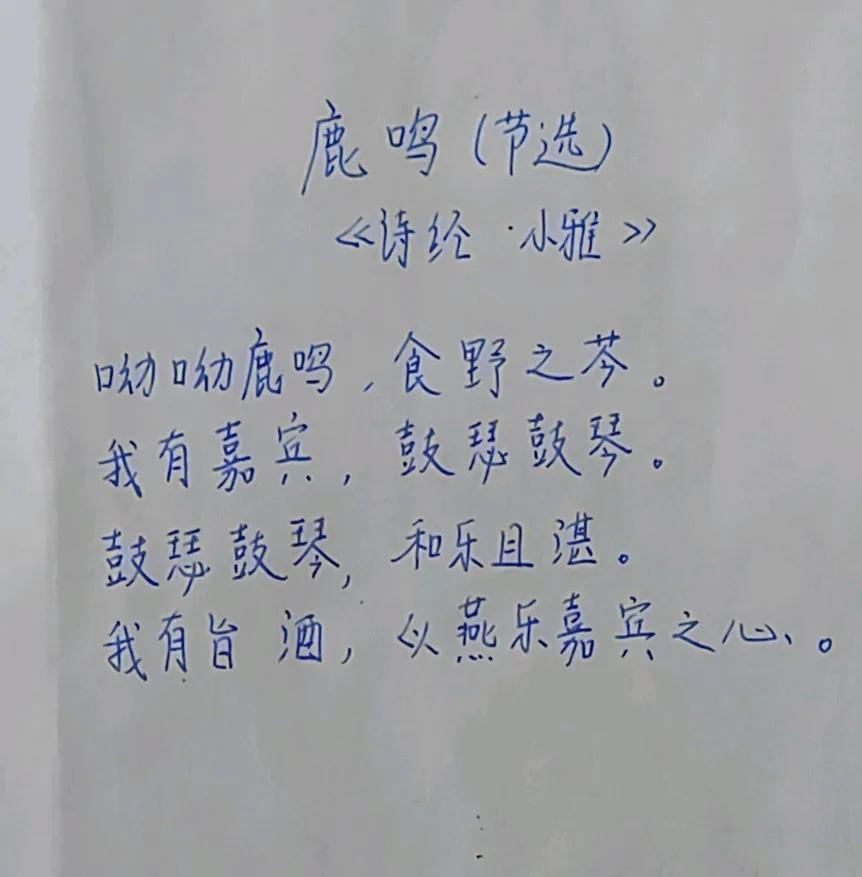 鹿鸣(节选)
《诗经·小雅》
呦呦鹿鸣,食野之芩。
我有嘉宾,鼓瑟鼓琴。
鼓瑟鼓琴,和乐且湛。
我有旨酒,以燕乐嘉宾之心。